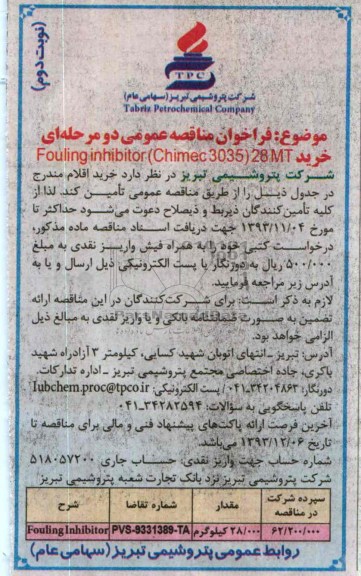 (نوبت دوم)
TPC
شرکت پتروشیمی تبریز (سهامی عام)
Tabriz Petrochemical Company
موضوع: فراخوان مناقصه عمومی دو مرحله‌ای
خرید Fouling inhibitor (Chimec 3035) 28 MT
شرکت پتروشیمی تبریز در نظر دارد خرید اقلام مندرج
در جدول ذیل را از طریق مناقصه عمومی تأمین کند. لذا از
کلیه تأمین‌کنندگان ذیربط و ذیصلاح دعوت می‌شود حداکثر تا
مورخ ۱۳۹۳/۱۱/۰۴ جهت دریافت اسناد مناقصه ماده مذکور،
درخواست کتبی خود را به همراه فیش واریز نقدی به مبلغ
۵۰۰/۰۰۰ ریال به دورنگار یا پست الکترونیکی ذیل ارسال و یا به
آدرس زیر مراجعه فرمایید.
لازم به ذکر است: برای شرکت‌کنندگان در این مناقصه ارائه
تضمین به صورت ضمانتنامه بانکی و یا واریز نقدی به مبالغ ذیل
الزامی خواهد بود.
آدرس: تبریز ـ انتهای اتوبان شهید کسایی، کیلومتر ۳ آزادراه شهید
باکری، جاده اختصاصی مجتمع پتروشیمی تبریز ـ اداره تدارکات.
دورنگار: ۳۴۲۰۴۸۶۳-۰۴۱ / پست الکترونیکی: Iubchem.proc@tpco.ir
تلفن پاسخگویی به سؤالات: ۳۴۲۸۲۵۹۴-۰۴۱
آخرین فرصت ارائه پاکت‌های پیشنهاد فنی و مالی برای مناقصه تا
تاریخ ۱۳۹۳/۱۲/۰۶ می‌باشد.
شماره حساب جهت واریز نقدی: حساب جاری ۵۱۸۰۵۷۲۰۰
شرکت پتروشیمی تبریز نزد بانک تجارت شعبه پتروشیمی تبریز
شرح شماره تقاضا مقدار سپرده شرکت در مناقصه
Fouling Inhibitor PVS-9331389-TA ۲۸/۰۰۰ کیلوگرم ۶۲/۲۰۰/۰۰۰
روابط عمومی پتروشیمی تبریز (سهامی عام)